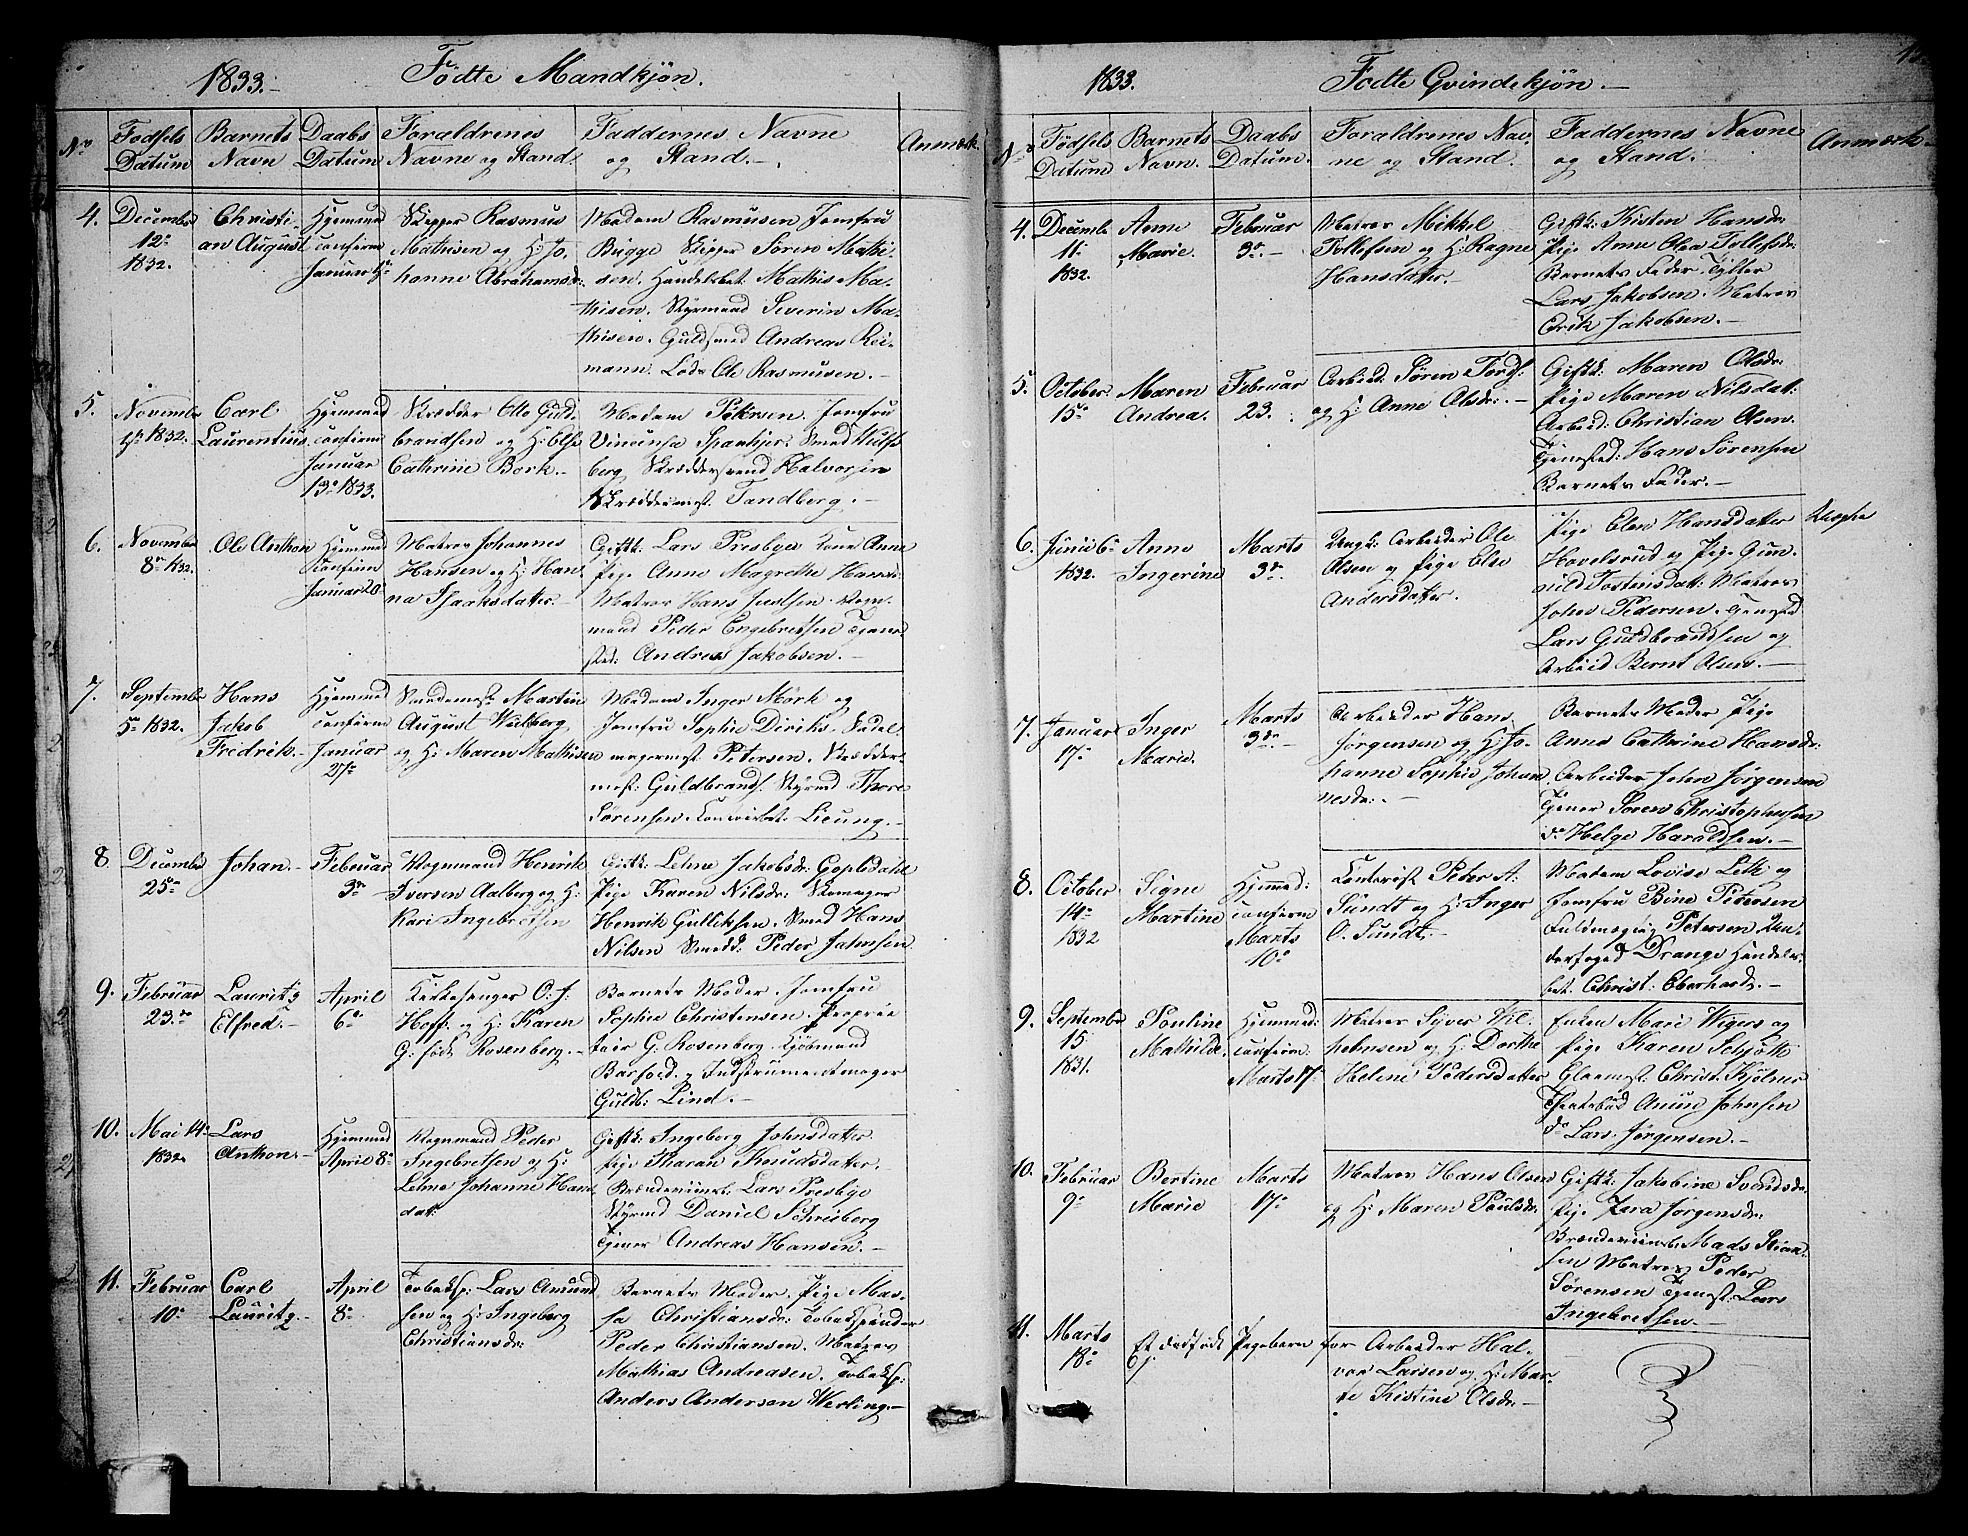 1833.
Fødte Mandkjøn.
No
Fødsels Datum
Barnets Navn
Daabs Datum
Foraldrenes Navne og Stand.
Faddernes Navne og Stand.
Anmærk
4.
December 12te 1832.
Christian August
Hjemmed confirm Januar
Skipper Rasmus
Mathisen og H: Jo-
hanne Abrahamsdr:
Madam Rasmusen Jomfru
Bugge Skipper Søren Mathi-
sen. Handelsbet: Mathis Ma-
thisen. Styrmand Severin Ma-
thisen. Guldsmed Andreas Rei-
mann. Lods Ole Rasmusen.
5.
November 1832.
Carl Laurentius
Hjemmed confirm Januar 13de 1833.
Skrædder Otto Guld-
brandsen og H: Else
Cathrine Bork.
Madam Petersen. Jomfru
Smed Wulfs
berg, Skræddersvend Halvorsen
Skræddermest. Tandberg.
6.
November 8de 1832.
Ole Anthon
Hjemmed Confirm Januar 20
Matros Johannes
Hansen og H: Han-
na Isaaksdatter.
Giftk: Lars Presbye Kone Anne
Pige Anne Magrethe Hansd:
Matros Hans Juelsen. Vogn-
mand Peder Engebretsen Tjene
sted: Andreas Jakobsen.
7.
September 5te 1832.
Hans Jakob Fredrik.
Hjemmed confirm Januar 27de
Smedemest: Martin
August Wulberg
og H: Maren Mathisen
Madam Inger Mørk og
Jomfru Sophie Diriks. Sadel
magermest: Petersen. Skrædder-
mest: Guldbrands. Styrmd Thore
Sørensen.
8
December 25de
Johan.
Februar 3de
Vognmand Henrik
Iversen Aalberg og H:
Kari Ingebretsen
Giftk: Lehne Jakobsdr: Goplsdahl
Pige Karen Nilsdr: Skomager
Henrik Gulliksen. Smed Hans
Nilsen Smedd: Peder Jahnsen
9.
Februar 23de
Lauritz Elfred.
April 6te
Kirkesanger O. J.
Hoff. og H: Karen
G: født Rosenberg.
Barnets Moder. Jomfru
Sophie Christensen. Proprie
tair G: Rosenberg. Kjøbmand
Barfoed. og Instrumentmager
Guldb: Lind.
10.
Mai 14de 1832.
Lars Anthon.
Hjemmed April 8de
Vognmand Peder
Ingebretsen og H:
Lehne Johanne Hans
dat:
Giftk: Ingeborg Johnsdatter
Pige Tharan Knudsdatter.
Brændeviinsb: Lars Presbye
Styrmd Daniel Schreiberg
Tjener Andreas Hansen.
11.
Februar 10de
Carl Lauritz.
April 8de
Tobaksp: Lars Amund
sen og H: Ingeborg
Christiansdr:
Barnets Moder. Pige Mas-
sa Christiansdr: Tobakspinder
Peder Christiansen. Matros
Mathias Andreasen. Tobaksp:
Anders Andersen Werling.
1833.
Fødte Qvindekjøn.
No
Fødsels Datum
Barnets Navn.
Daabs Datum.
Foraldrenes Navne og Stand.
Faddernes Navne og Stand.
Anmærk
4.
Decembr 11te 1832.
Anne Marie.
Februar 3de
Matros Mikkel
Tollefsen og H: Ragne
Hansdatter.
Giftk: Kisten Hansdr.
Pige Anne Olea Tollefsdr.
Barnets Fader. Tjller
Lars Jakobsen. Matros
Erik Jakobsen.
5.
October 15de
Maren Andrea.
Februar 23.
Arbeid: Søren Tords.
og H: Anne Olsdr:
Giftk: Maren Olsdr:
Pige Maren Nilsdat:
Arbeid: Christian Olsen.
Tjenested: Hans Sørensen
Barnets Fader.
6.
Junii 6te 1832.
Anne Ingerine
Marts 3de
Ungk: Arbeider Ole
Olsen og Pige Else
Andersdatter.
Pige Elen Hansdatter
Hovelsrud og Pige Gun-
nild Tostensdatt: Matros
Johes Pedersen. Tjenested
Lars Guldbrandsen og
Arbeid Bernt Olsen.
Uægte
7.
Januar 17de
Inger Marie.
Marts 3de
Arbeider Hans
Jørgensen og H: Jo-
hanne Sophie Johan
nesdr:
Barnets Moder Pige
Anne Cathrine Hansdr:
Arbeider John Jørgensen
Tjener Søren Christophersen
do Helge Haraldsen.
8.
October 14de 1832
Signe Martine
Hjemmed: confirm Marts 10de
Contorist Peter A:
Sundt og H: Inger
O. Sundt.
Madam Lovise Leth og
Jomfru Bine Petersen
Fuldmægtig Petersen Un-
derfoged Drange Handels-
bet. Christ: Eberhardt.
9.
September 15 1831.
Pouline Mathilde.
Hjemmed: confirm. Marts 17.
Matros Syver Wil-
helmsen og H: Dorthe
Helene Pedersdatter
Enken Mari Wigers og
Pige Karen Schjøth
Glarmest: Christ: Kjølner
Amund Johnsen
do Lars Jørgensen.
10.
Februar 9de
Bertine Marie
Marts 17de
Matros Hans Olsen
og H: Maren Poulsdr:
Giftk: Jakobine Svendsdr.
Pige Zara Jørgensdr:
Brændeviinsb. Mads Stian-
sen Matros Peder
Sørensen Tjenest: Lars
Ingebretsen.
11.
Marts 18de
Et dødfødt Pigebarn for Arbeider Hal-
vor Larsen og H: Mar-
te Kistine Olsdr.